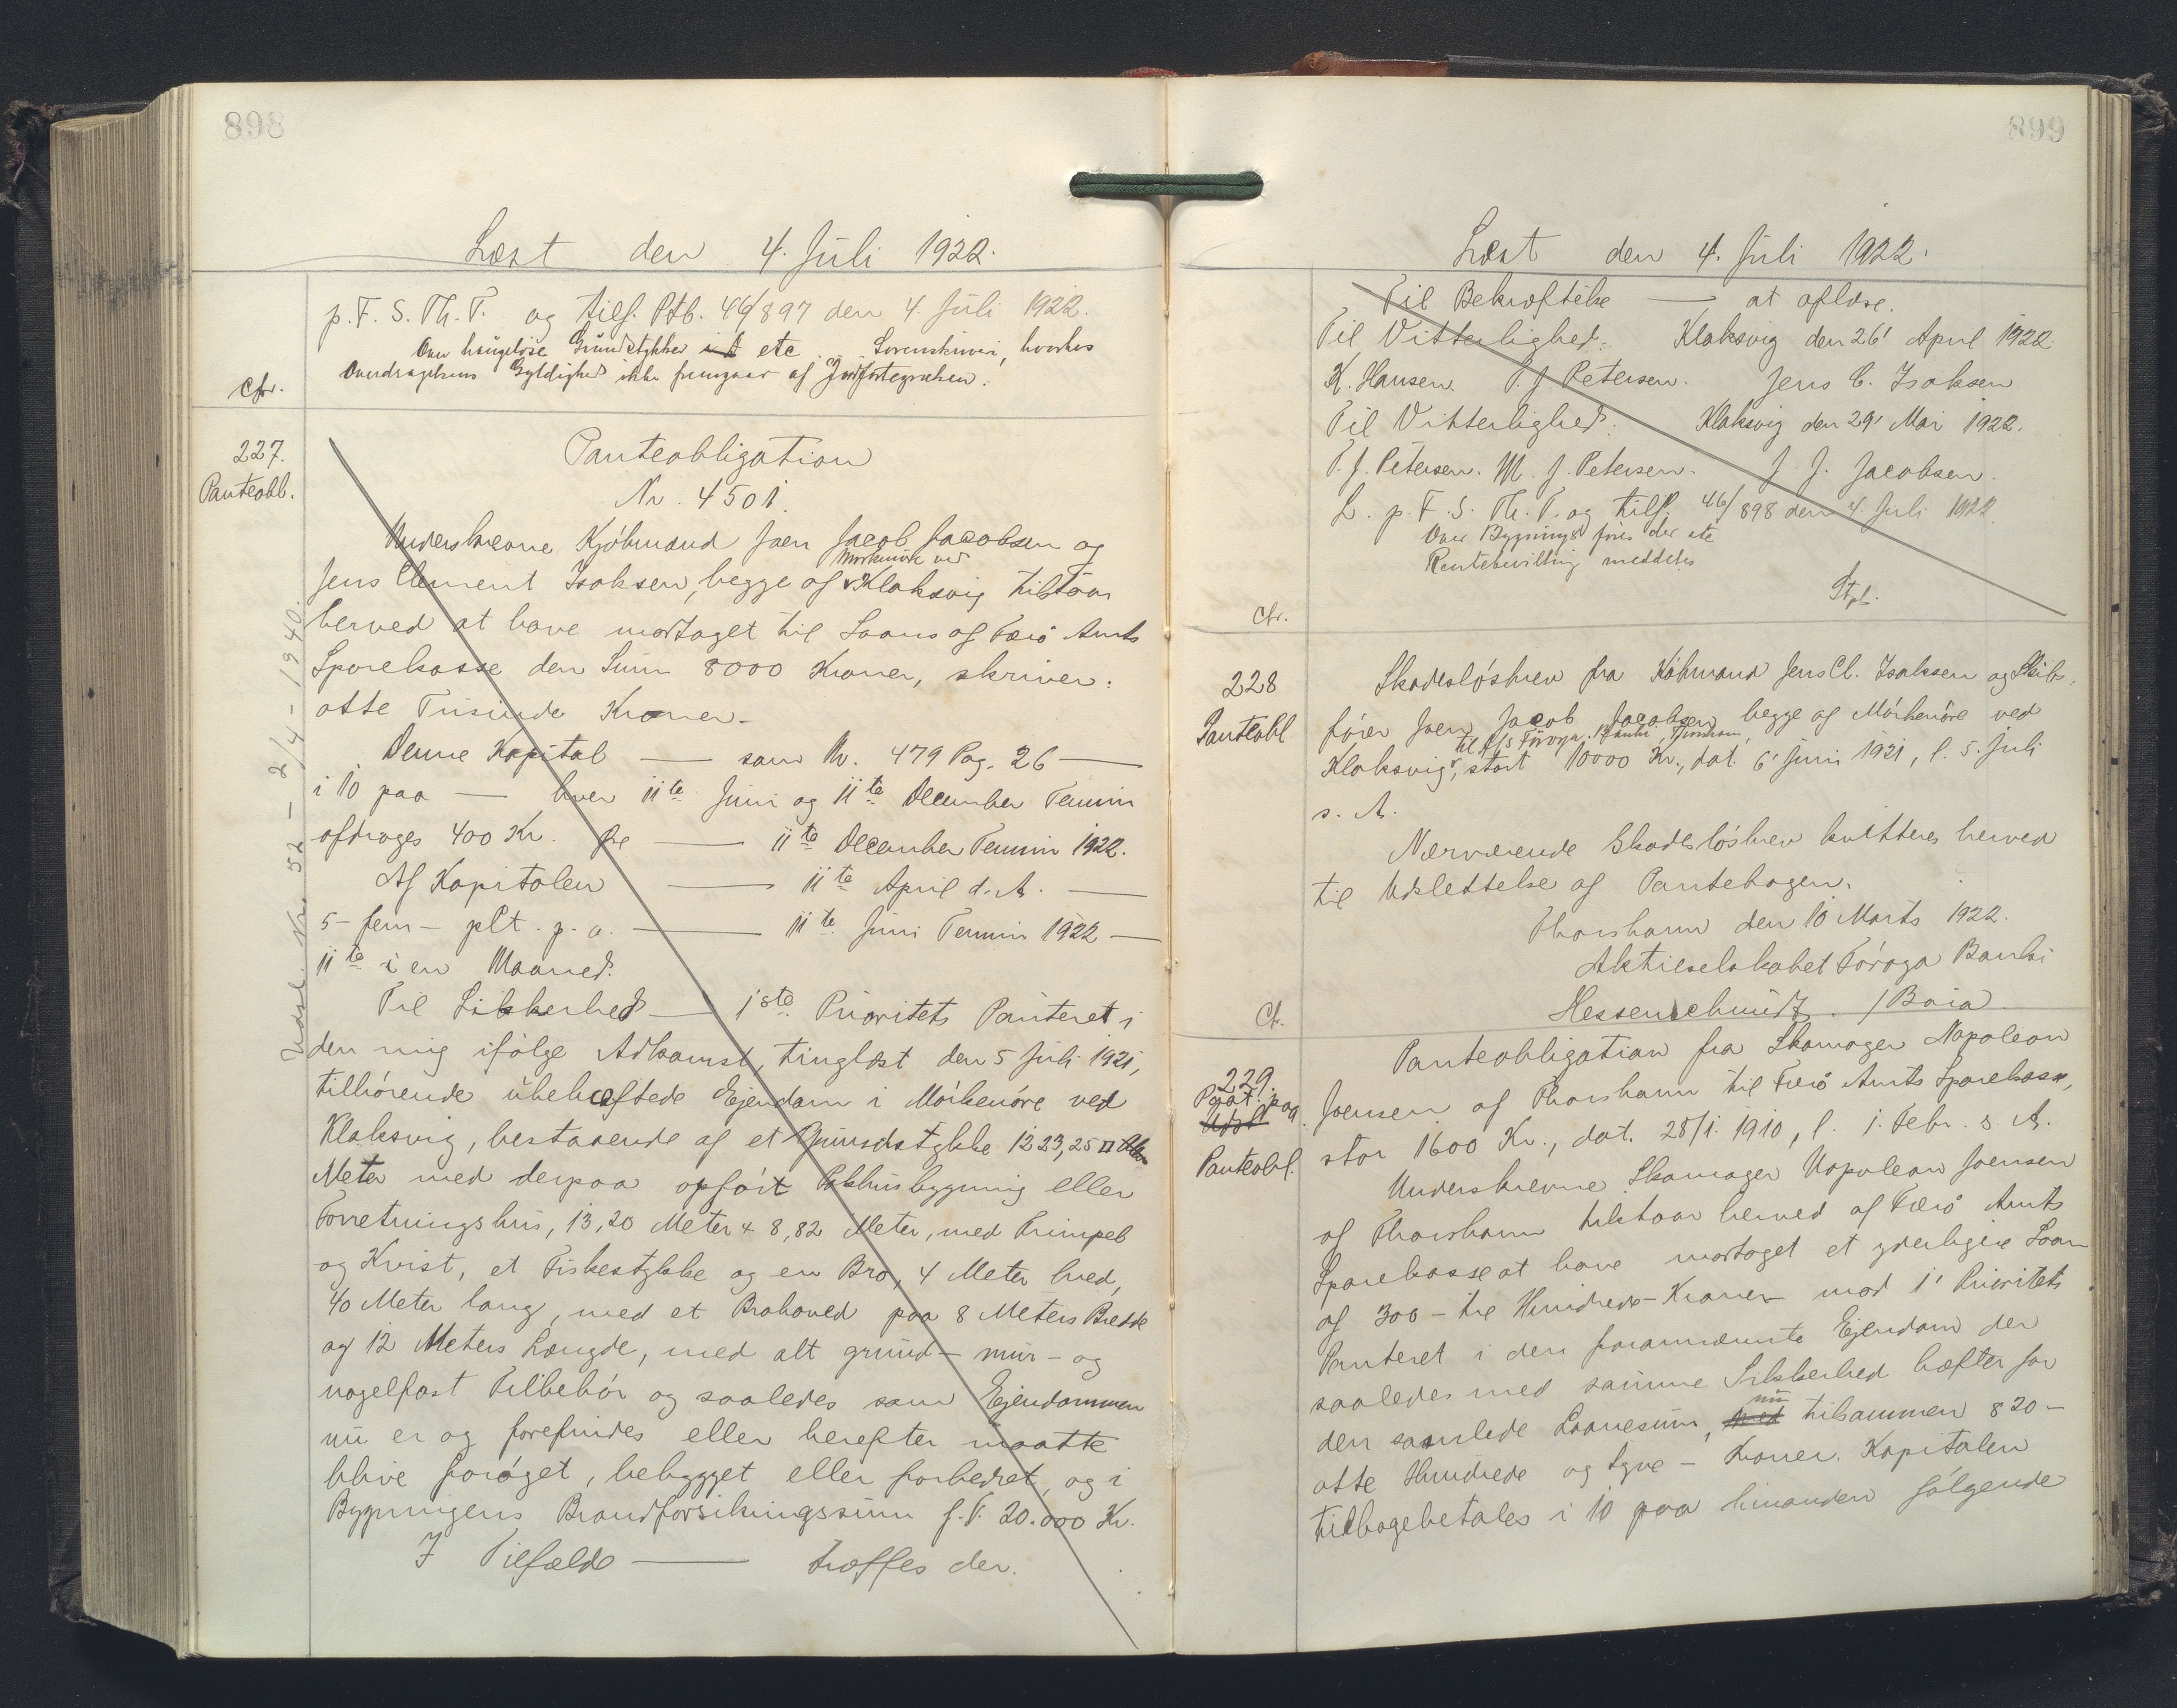 898
Læst den 4. Juli 1922.
p. F. S. Th. T. og tilf. Ptb. 46/897 den 4. Juli 1922.
Over haugeløse Grundstykker etc Sorenskriveri, hvorhos
Overdragelsens Gyldighed ikke fremgaar af Jordfortegnelsen.
Cfr.
227.
Panteobl.
Panteobligation
Nr. 4501.
Underskrevne Kjøbmand Joen Jacob Jacobsen og
Mørkenøre ved
Jens Clement Isaksen, begge af Klaksvig tilstaar
herved at have modtaget til Laans af Færø Amts
Sparekasse den Sum 8000 Kroner, skriver:
otte Tusinde Kroner.
Denne Kapital — som Nr. 479 Pag. 26 —
i 10 paa — hver 11te Juni og 11te December Termin
afdrages 400 Kr. — 11te December Termin 1922.
Af Kapitalen — 11te April d. A. —
5 - fem - pCt. p. a. — 11te Juni Termin 1922 —
11te i en Maaned.
Til Sikkerhed — 1ste Prioritets Panteret i
den mig ifølge Adkomst, tinglæst den 5 Juli 1921,
tilhørende ubehæftede Ejendom i Mørkenøre ved
Klaksvig, bestaaende af et Grundstykke 1323,25 □
Meter med derpaa opført Pakhusbygning eller
Forretningshus, 13,20 Meter + 8,82 Meter, med Trimpel
og Kvist, et Fiskestykke og en Bro, 4 Meter bred,
40 Meter lang, med et Brohoved paa 8 Meters Bredde
og 12 Meters Længde, med alt grund- mur- og
nagelfast Tilbehør og saaledes som Ejendommen
nu er og forefindes eller herefter maatte
blive forøget, bebygget eller forbedret, og i
Bygningens Brandforsikringssum f. T. 20.000 Kr.
I Tilfælde — træffes der.
Udsl. Nr. 52 - 2/4 - 1940.
899
Læst den 4. Juli 1922.
Til Bekræftelse — at aflæse.
Til Vitterlighed: Klaksvig den 26' April 1922.
K. Hansen. P. J. Petersen. Jens C. Isaksen
Til Vitterlighed: Klaksvig den 29' Mai 1922.
P. J. Petersen. M. J. Petersen. J. J. Jacobsen.
L. p. F. S. Th. T. og tilf. 46/898 den 4. Juli 1922
Over Bygninger føres der ete
Rentebevilling meddeles
Stpl.
Cfr.
228
Panteobl
Skadesløsbrev fra Købmand Jens Cl. Isaksen og Skibs-
fører Joen Jacob Jacobsen, begge af Mørkenøre ved
til A/S Føroya Banki, Thorshavn,
Klaksvig, stort 10000 Kr., dat. 6' Juni 1921, l. 5. Juli
s. A.
Nærværende Skadesløsbrev kvitteres herved
til Udslettelse af Pantebogen.
Thorshavn den 10 Marts 1922.
Aktieselskabet Føroya Banki
Hessenschmidt. / Baia
Cfr.
229.
Paat. pag.
Udsl
Panteobl.
Panteobligation fra Skomager Napoleon
Joensen af Thorshavn til Færø Amts Sparekasse,
stor 1600 Kr., dat. 28/1. 1910, l. 1. Febr. s. A.
Underskrevne Skomager Napoleon Joensen
af Thorshavn tilstaar herved af Færø Amts
Sparekasse at have modtaget et yderligere Laan
af 300 - tre Hundrede - Kroner mod 1' Prioritets
Panteret i den forannævnte Ejendom der
saaledes med samme Sikkerhed hæfter for
nu
den samlede Laanesum, med tilsammen 820 -
otte Hundrede og tyve - Kroner. Kapitalen
tilbagebetales i 10 paa hinanden følgende